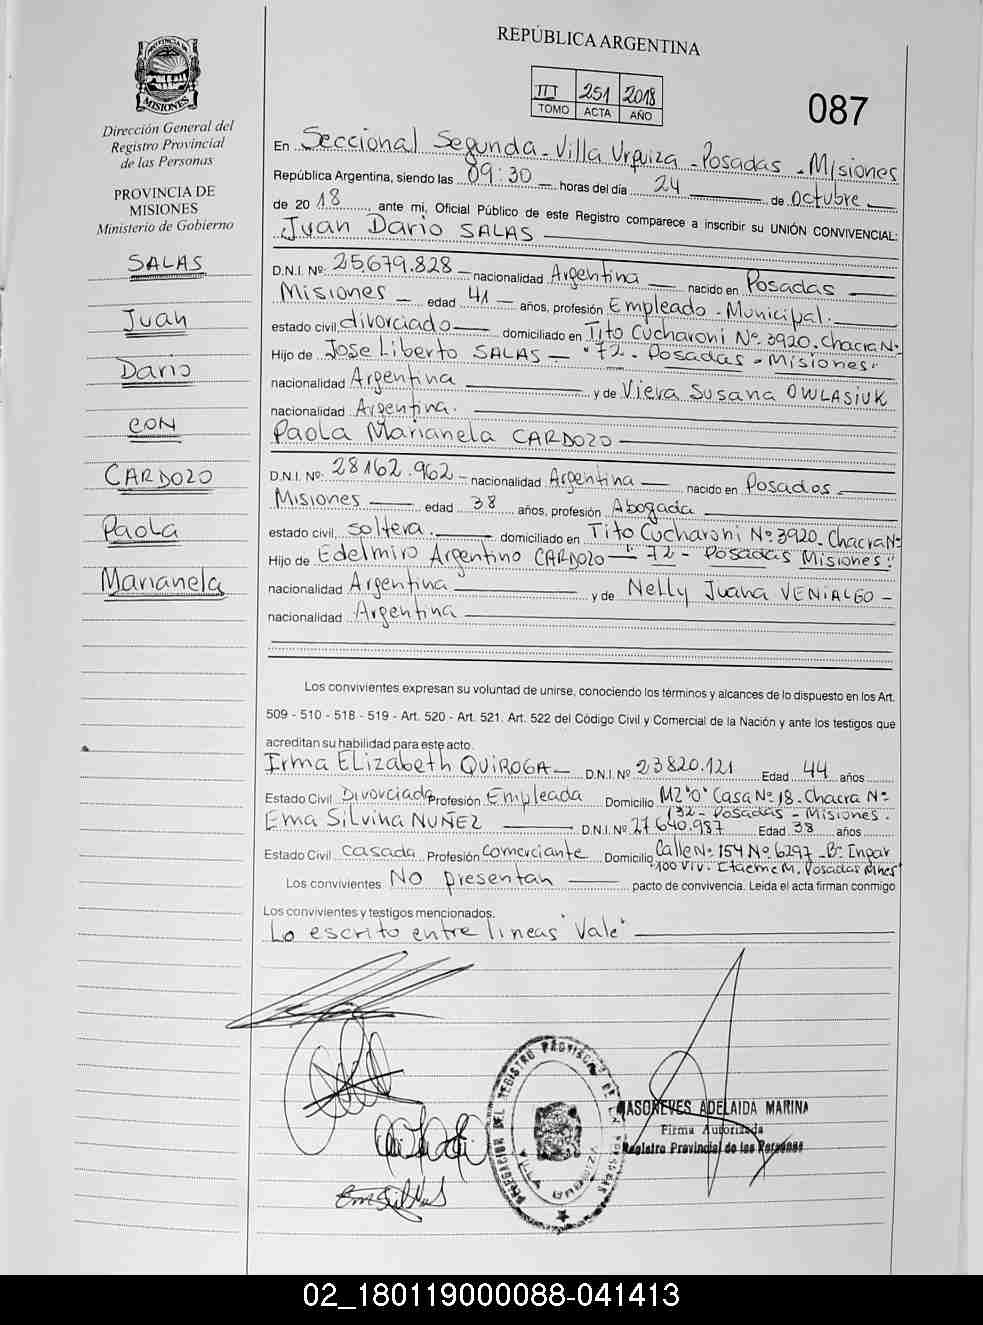 REPÚBLICA ARGENTINA
III 251 2018
TOMO ACTA AÑO
087
PROVINCIA DE
MISIONES
Dirección General del
Registro Provincial
de las Personas
PROVINCIA DE
MISIONES
Ministerio de Gobierno
SALAS
Juan
Dario
CON
CARDOZO
Paola
Marianela
En Seccional Segunda - Villa Urquiza - Posadas - Misiones
República Argentina, siendo las 09:30 horas del día 24 de Octubre
de 2018, ante mi, Oficial Público de este Registro comparece a inscribir su UNIÓN CONVIVENCIAL:
Juan Dario SALAS
D.N.I. Nº 25.679.828 nacionalidad Argentina nacido en Posadas
Misiones edad 41 años, profesión Empleado - Municipal.
estado civil divorciado domiciliado en Tito Cucharoni Nº 3920. Chacra Nº
Hijo de Jose Liberto SALAS "72 - Posadas - Misiones"
nacionalidad Argentina y de Viera Susana OWLASIUK
nacionalidad Argentina.
Paola Marianela CARDOZO
D.N.I. Nº 28.162.962 nacionalidad Argentina nacido en Posadas
Misiones edad 38 años, profesión Abogada
estado civil soltera. domiciliado en Tito Cucharoni Nº 3920. Chacra Nº
Hijo de Edelmiro Argentino CARDOZO "72 - Posadas Misiones"
nacionalidad Argentina y de Nelly Juana VENIALGO -
nacionalidad Argentina
Los convivientes expresan su voluntad de unirse, conociendo los términos y alcances de lo dispuesto en los Art.
509 - 510 - 518 - 519 - Art. 520 - Art. 521. Art. 522 del Código Civil y Comercial de la Nación y ante los testigos que
acreditan su habilidad para este acto.
Irma Elizabeth QUIROGA D.N.I. Nº 23820.121 Edad 44 años
Estado Civil Divorciada Profesión Empleada Domicilio MZ "O" Casa Nº 18. Chacra Nº
132 - Posadas - Misiones.
Ema Silvina NUÑEZ D.N.I. Nº 27640.987 Edad 38 años
Estado Civil casada Profesión comerciante Domicilio Calle Nº 154 Nº 6297 - Bº Ingar
"100 Viv. Itaembe M. Posadas Mnes"
Los convivientes No presentan pacto de convivencia. Leida el acta firman conmigo
Los convivientes y testigos mencionados.
Lo escrito entre lineas "Vale"
DELEGACION DEL REGISTRO PROVINCIAL DE LAS PERSONAS
VILLA URQUIZA
MASONEVES ADELAIDA MARINA
Firma Autorizada
Registro Provincial de las Personas
02_180119000088-041413